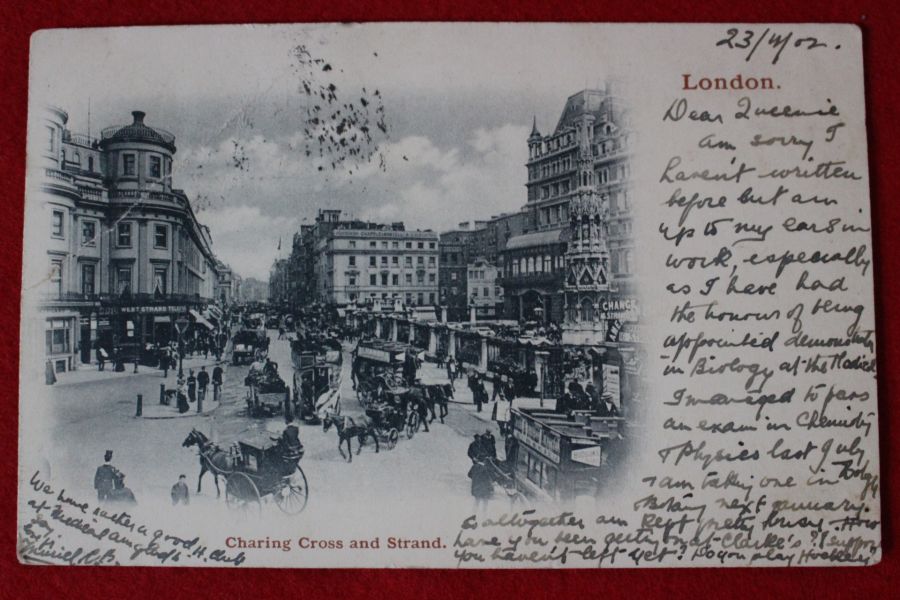 23/11/02.
London.
Dear Queenie
Am sorry I
haven't written
before but am
up to my ears in
work, especially
as I have had
the honour of being
appointed demonstrator
in Biology at the Medical.
I managed to pass
an exam in Chemistry
& Physics last July
& am taking one in Biology
Botany next January.
So altogether am kept pretty busy. How
have you been getting on at Clarke's? I suppose
you haven't left yet? Do you play Hockey
We have rather a good H. Club
at Medical am glad to
say.
Muriel
Charing Cross and Strand.
WEST STRAND
CHANGE